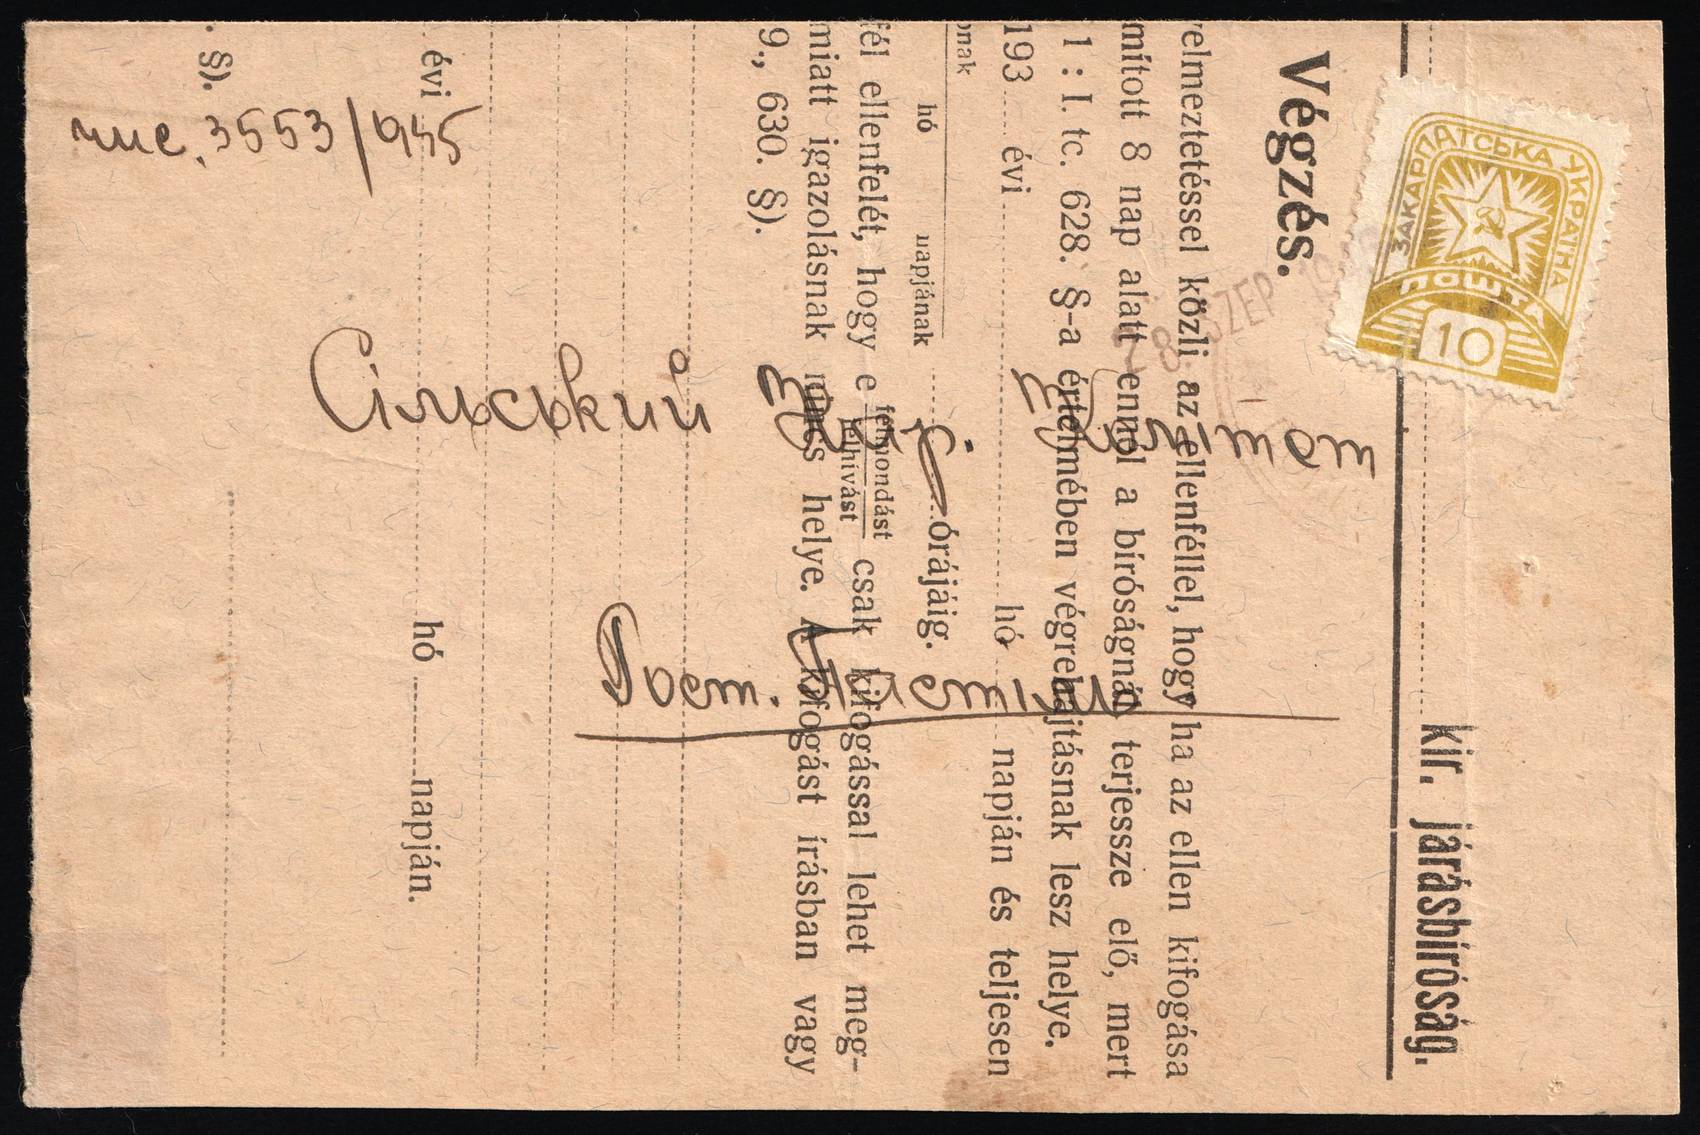 чис. 3553/945
Сільський
Комітет
ЗАКАРПАТСЬКА УКРАЇНА
ПОШТА
10
8. SZEP
kir. járásbíróság.
Végzés.
velmeztetéssel közli az ellenféllel, hogy ha az ellen kifogása
mított 8 nap alatt ennél a bíróságnál terjessze elő, mert
1 : I. tc. 628. §-a értelmében végrehajtásnak lesz helye.
193 évi hó napján és teljesen
onak
hó napjának órájáig.
fél ellenfelét, hogy e felmondást felhívást csak kifogással lehet meg-
miatt igazolásnak nincs helye. A kifogást írásban vagy
9., 630. §).
évi hó napján.
. §).